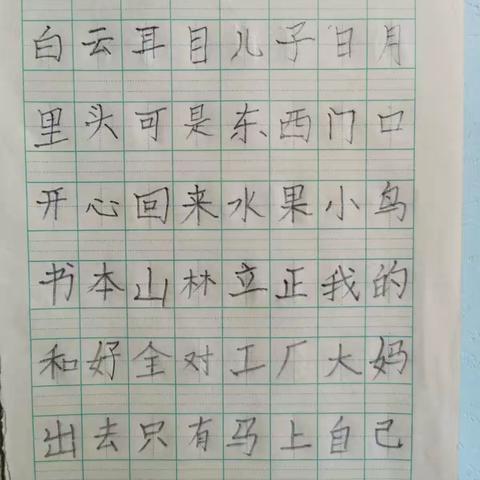 白云耳目儿子日月
里头可是东西门口
开心回来水果小鸟
书本山林立正我的
和好全对工厂大妈
出去只有马上自己